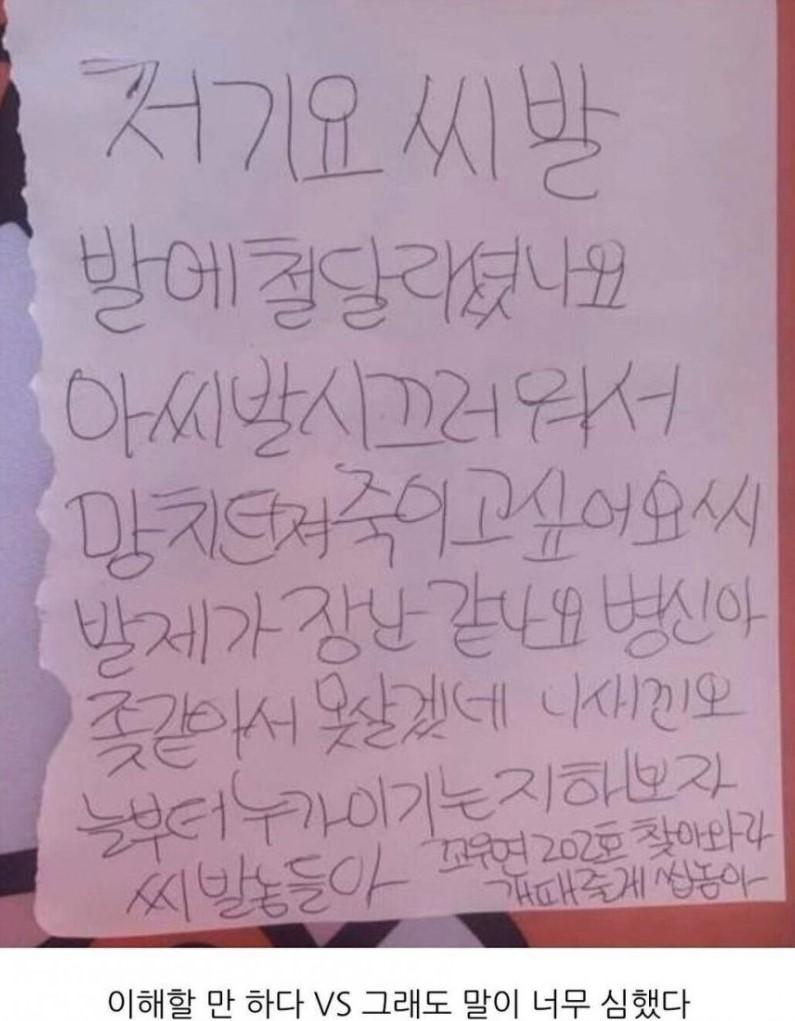 저기요 씨발
발에 철달리셨나요
아씨발시끄러워서
망치던져죽이고싶어요씨
발제가 장난 같나요 병신아
좆같아서 못살겠네 니새낀오
늘부터누가이기는지해보자
씨발놈들아
202호 찾아와라
개패줄게 씹놈아
이해할 만 하다 VS 그래도 말이 너무 심했다